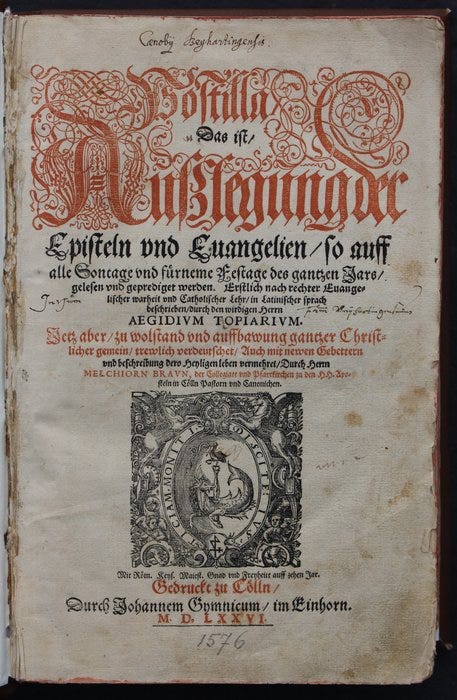 Cœnobÿ Beÿhartingensis.
Postilla
Das ist/
Außlegung der
Episteln vnd Euangelien/ so auff
alle Sontage vnd fürneme Festage des gantzen Jars/
gelesen vnd geprediget werden. Erstlich nach rechter Euange-
lischer warheit vnd Catholischer Lehr/ in Latinischer sprach
beschrieben/ durch den wirdigen Herrn
AEGIDIVM TOPIARIVM.
Jetz aber/ zu wolstand vnd auffbawung gantzer Christ-
licher gemein/ trewlich verdeutschet/ Auch mit newen Gebettern
vnd beschreibung dero Heyligen leben vermehret/ Durch Herrn
MELCHIORN BRAVN, der Collegiat vnd Pfarrkirchen zu den HH. Apo-
steln in Cölln Pastorn vnd Canonichen.
DISCITE IVSTICIAM MONITI
Mit Röm. Keys. Maiest. Gnad vnd Freyheit auff zehen Jar.
Gedruckt zu Cölln/
Durch Johannem Gymnicum/ im Einhorn.
M. D. LXXVI.
1576